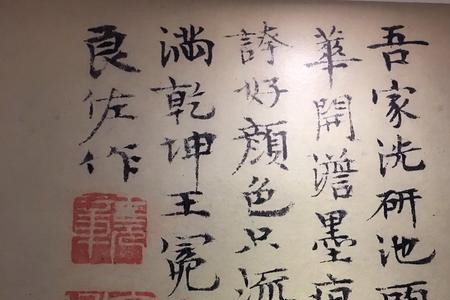 吾家洗研池
華開澹墨痕
誇好顔色只流
滿乾坤王冕
良佐作